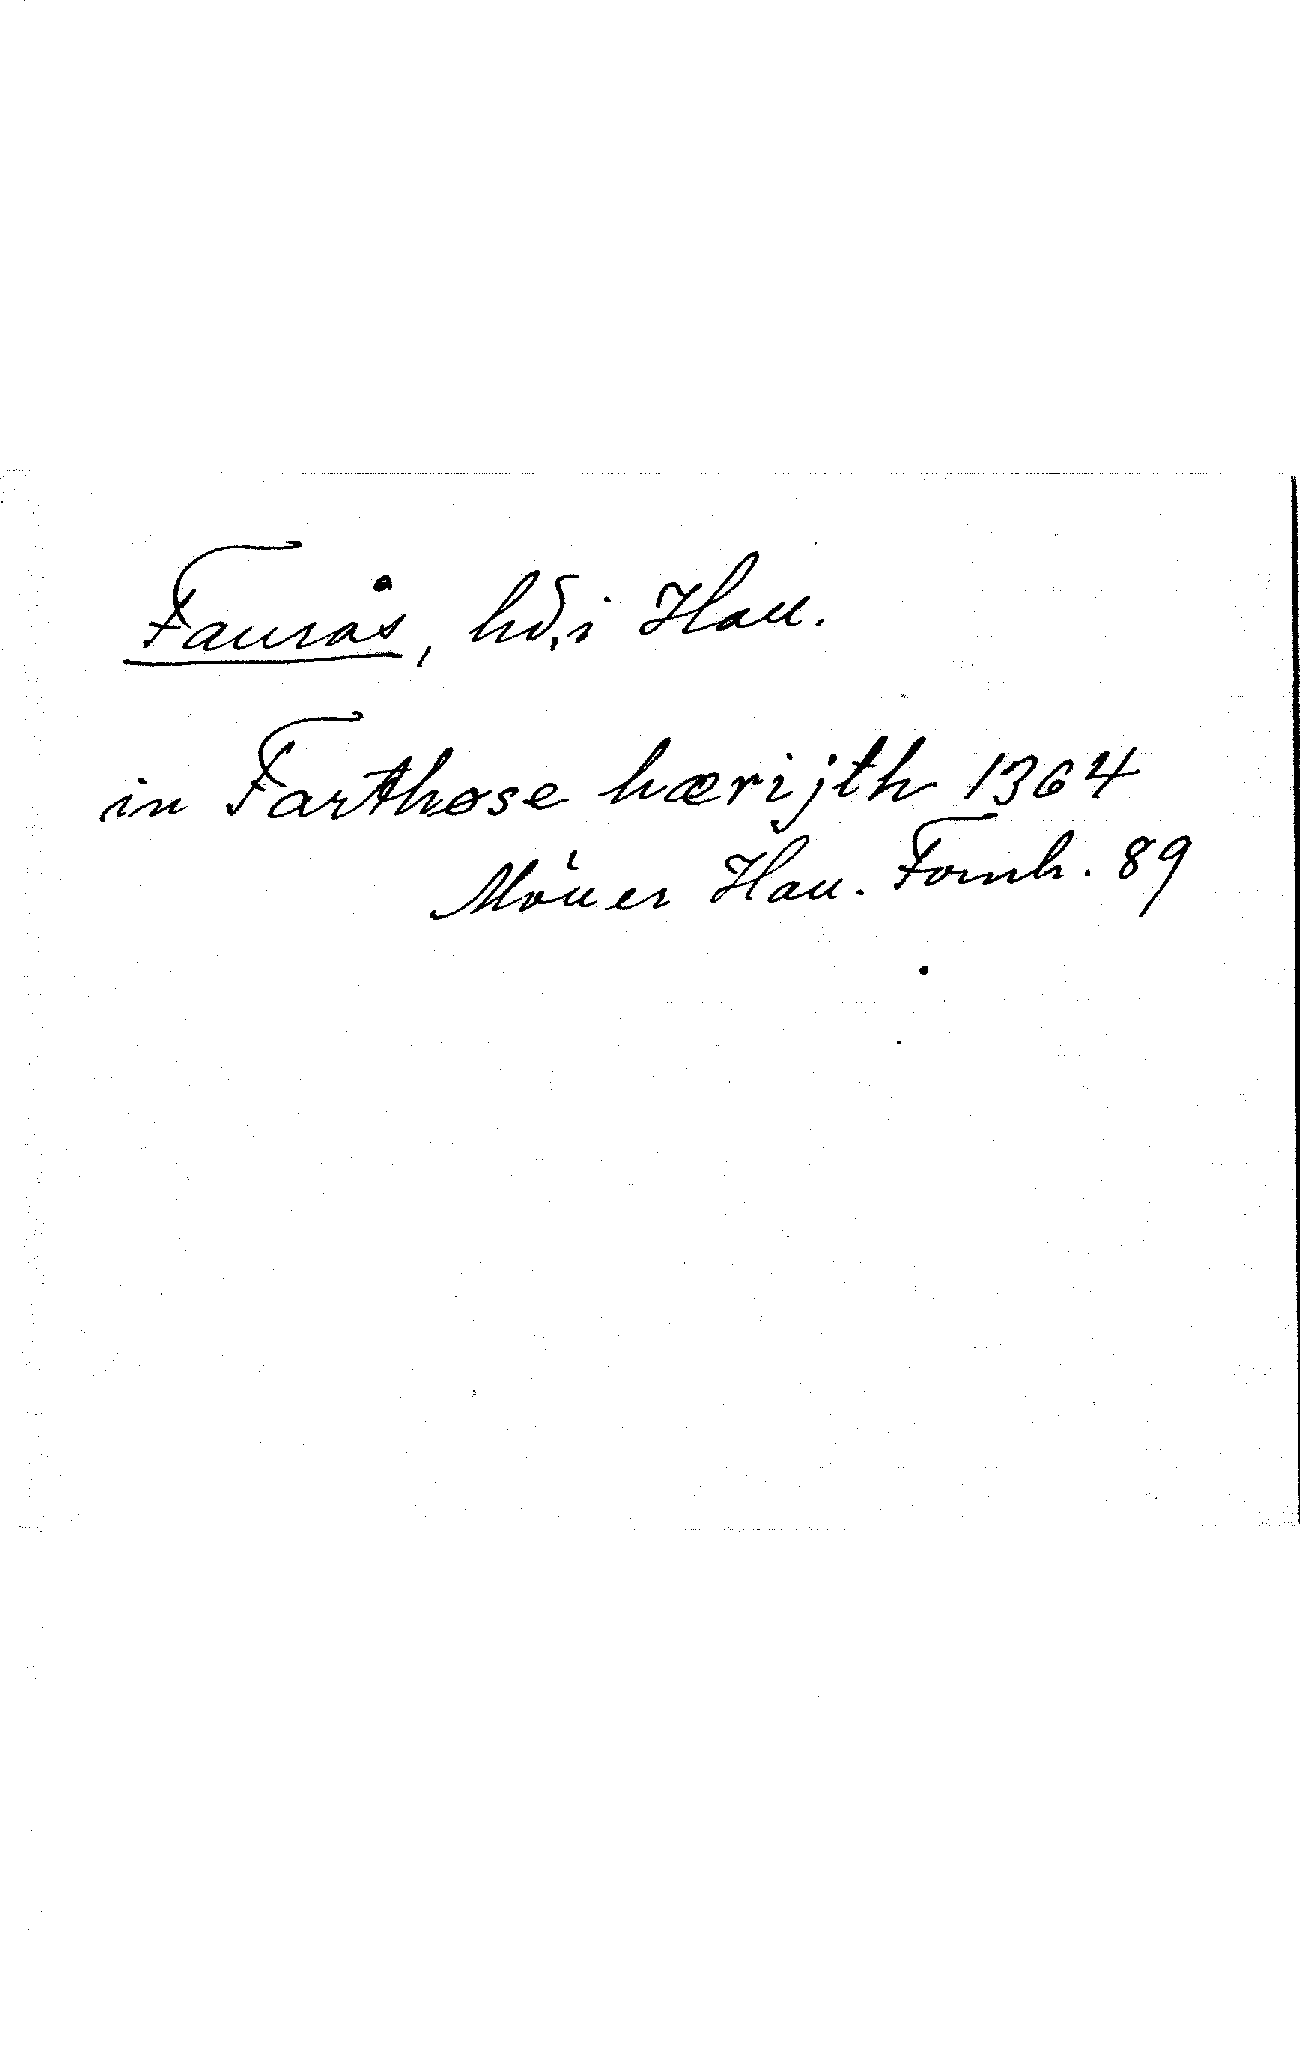 Faurås, hd, i Hall.
in Farthose hærijth 1364
Möller Hall. Fornh. 89